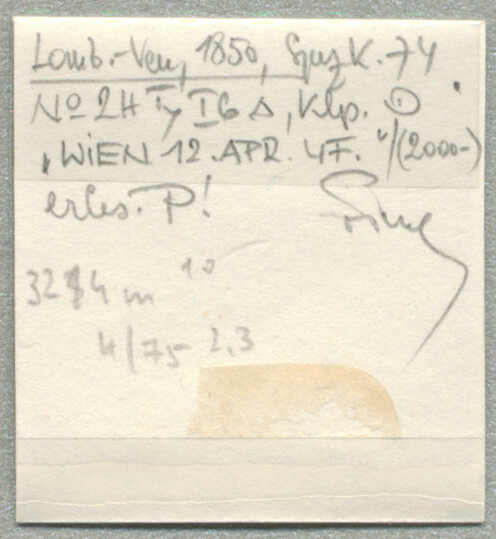 Lomb.-Ven, 1850, Spez K. 74
No 2H Ty I G Δ, Klp. ⊙
"WIEN 12. APR. 4F."/(2000-)
erles. P!
32 4 m 10
4/75 2,3